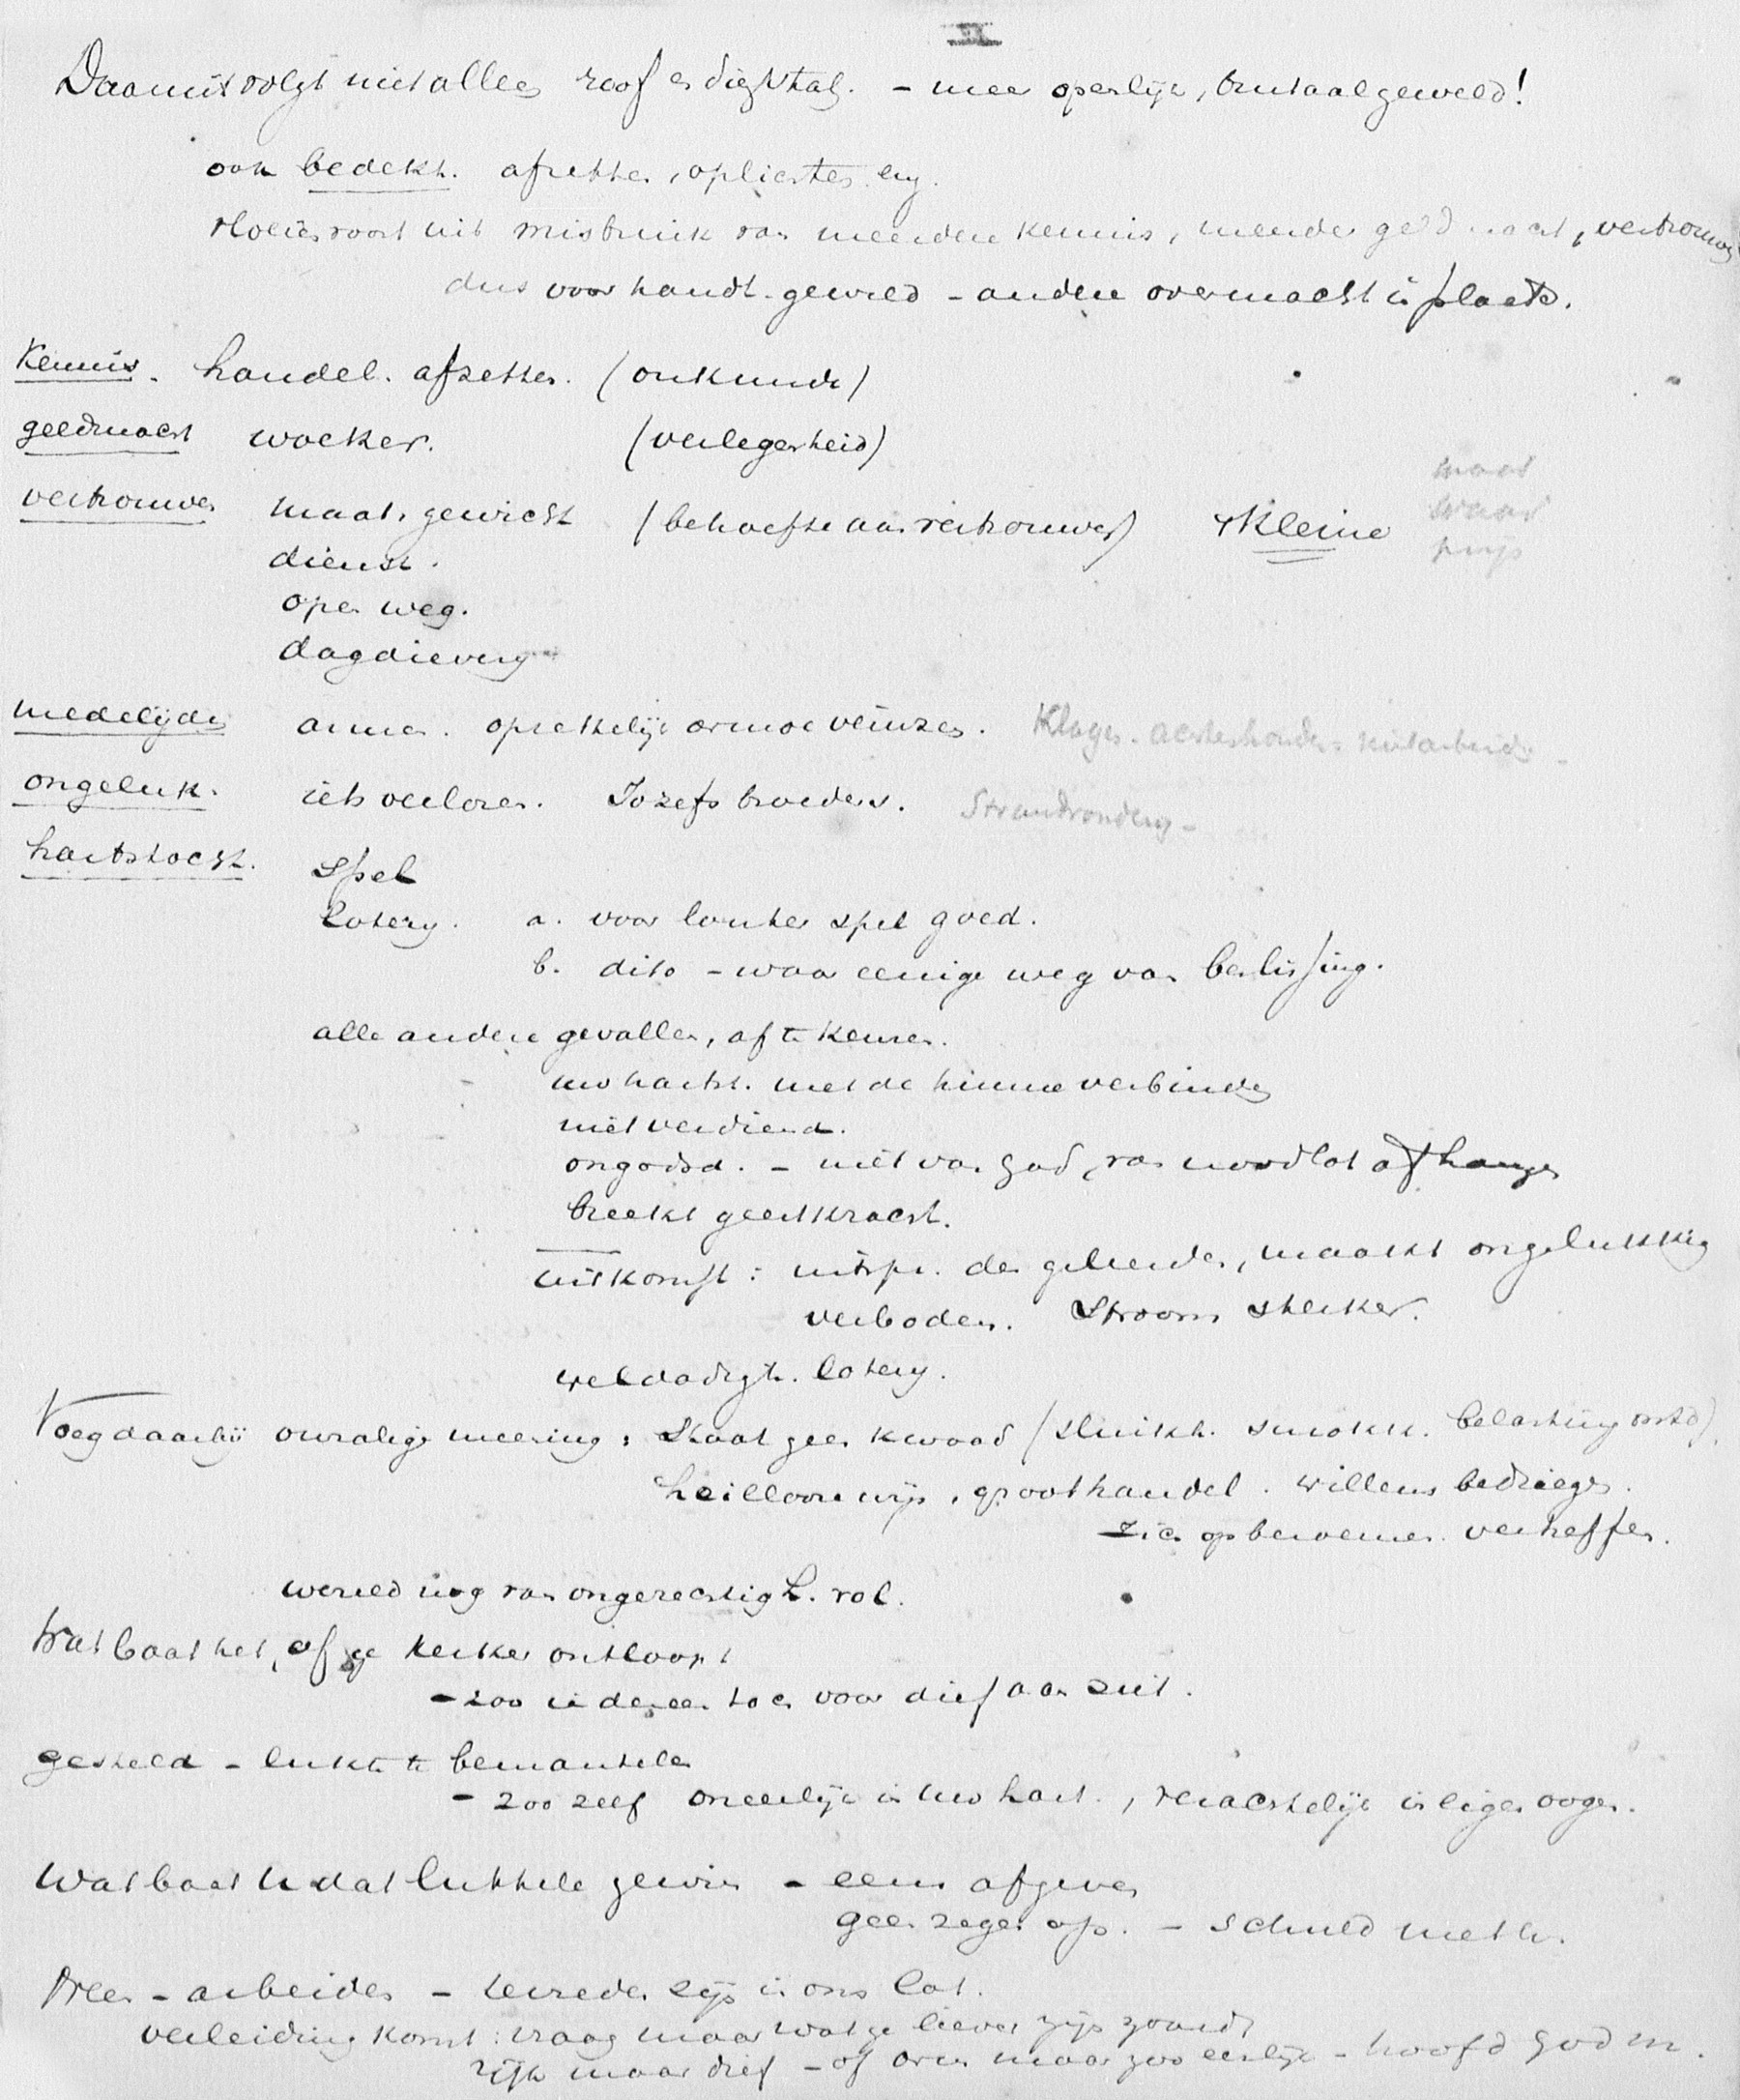 II
Daaruit volgt niet alleen roof en diefstal. - meer openlijk, brutaal geweld!
ook bedekt. afzetten, oplichten enz.
vloeien voort uit misbruik van meerdere kennis, meerder geldmacht, vertrouwen
dus voor handt. geweld - andere overmacht in plaats.
Kennis. handel. afzetten. (onkunde)
geldmacht woeker. (verlegenheid)
vertrouwen maat, gewicht (behoefte aan vertrouwen) + Kleine
maat
waar
prijs
dienst.
open weg.
dagdievery
medelijden armen. opzettelijk armoe veinzen. Klagen - achterhouden - uitarbeid
ongeluk. iets verloren. Jozefs broeders. Strandvondery -
hartstocht. Spel
lotery. a. voor louter spel goed.
b. dito - waar eenige weg van beslissing.
alle andere gevallen, af te keuren.
uw hartst. met de hunne verbinden
niet verdiend.
ongodsd. - niet van God, van noodlot afhangen
breekt geestkracht.
uitkomst: uitspr. der geleerden, maakt ongelukkig
verboden. Stroom sterker.
weldadigh. lotery.
Voeg daarbij onzalige meening: Staat geen kwaad (sluikh. smokk. belasting ontd)
heilloore wijs, groothandel. willens bedriegen.
zich op beroemen. verheffen.
wereld nog van ongerechtigh. vol.
Wat baat het, of ge kerker ontloopt
- zoo iedereen toch voor dief aanziet.
gesteld - lukt te bemantelen
- zoo zelf oneerlijk in uw hart., verachtelijk in eigen oogen.
Wat baat u dat luttele gewin - eens afgeven
geen zegen op. - schuld met u.
Neen - arbeiden - tevreden zijn in ons lot.
verleiding komt: vraag maar wat ge liever zijn zoudt
rijk maar dief - of arm maar zoo eerlijk - hoofd God